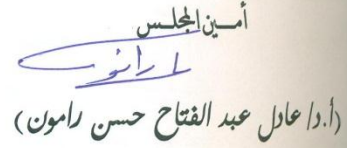 أمـين المجلـس
(أ.د/ عادل عبد الفتاح حسن رامون)